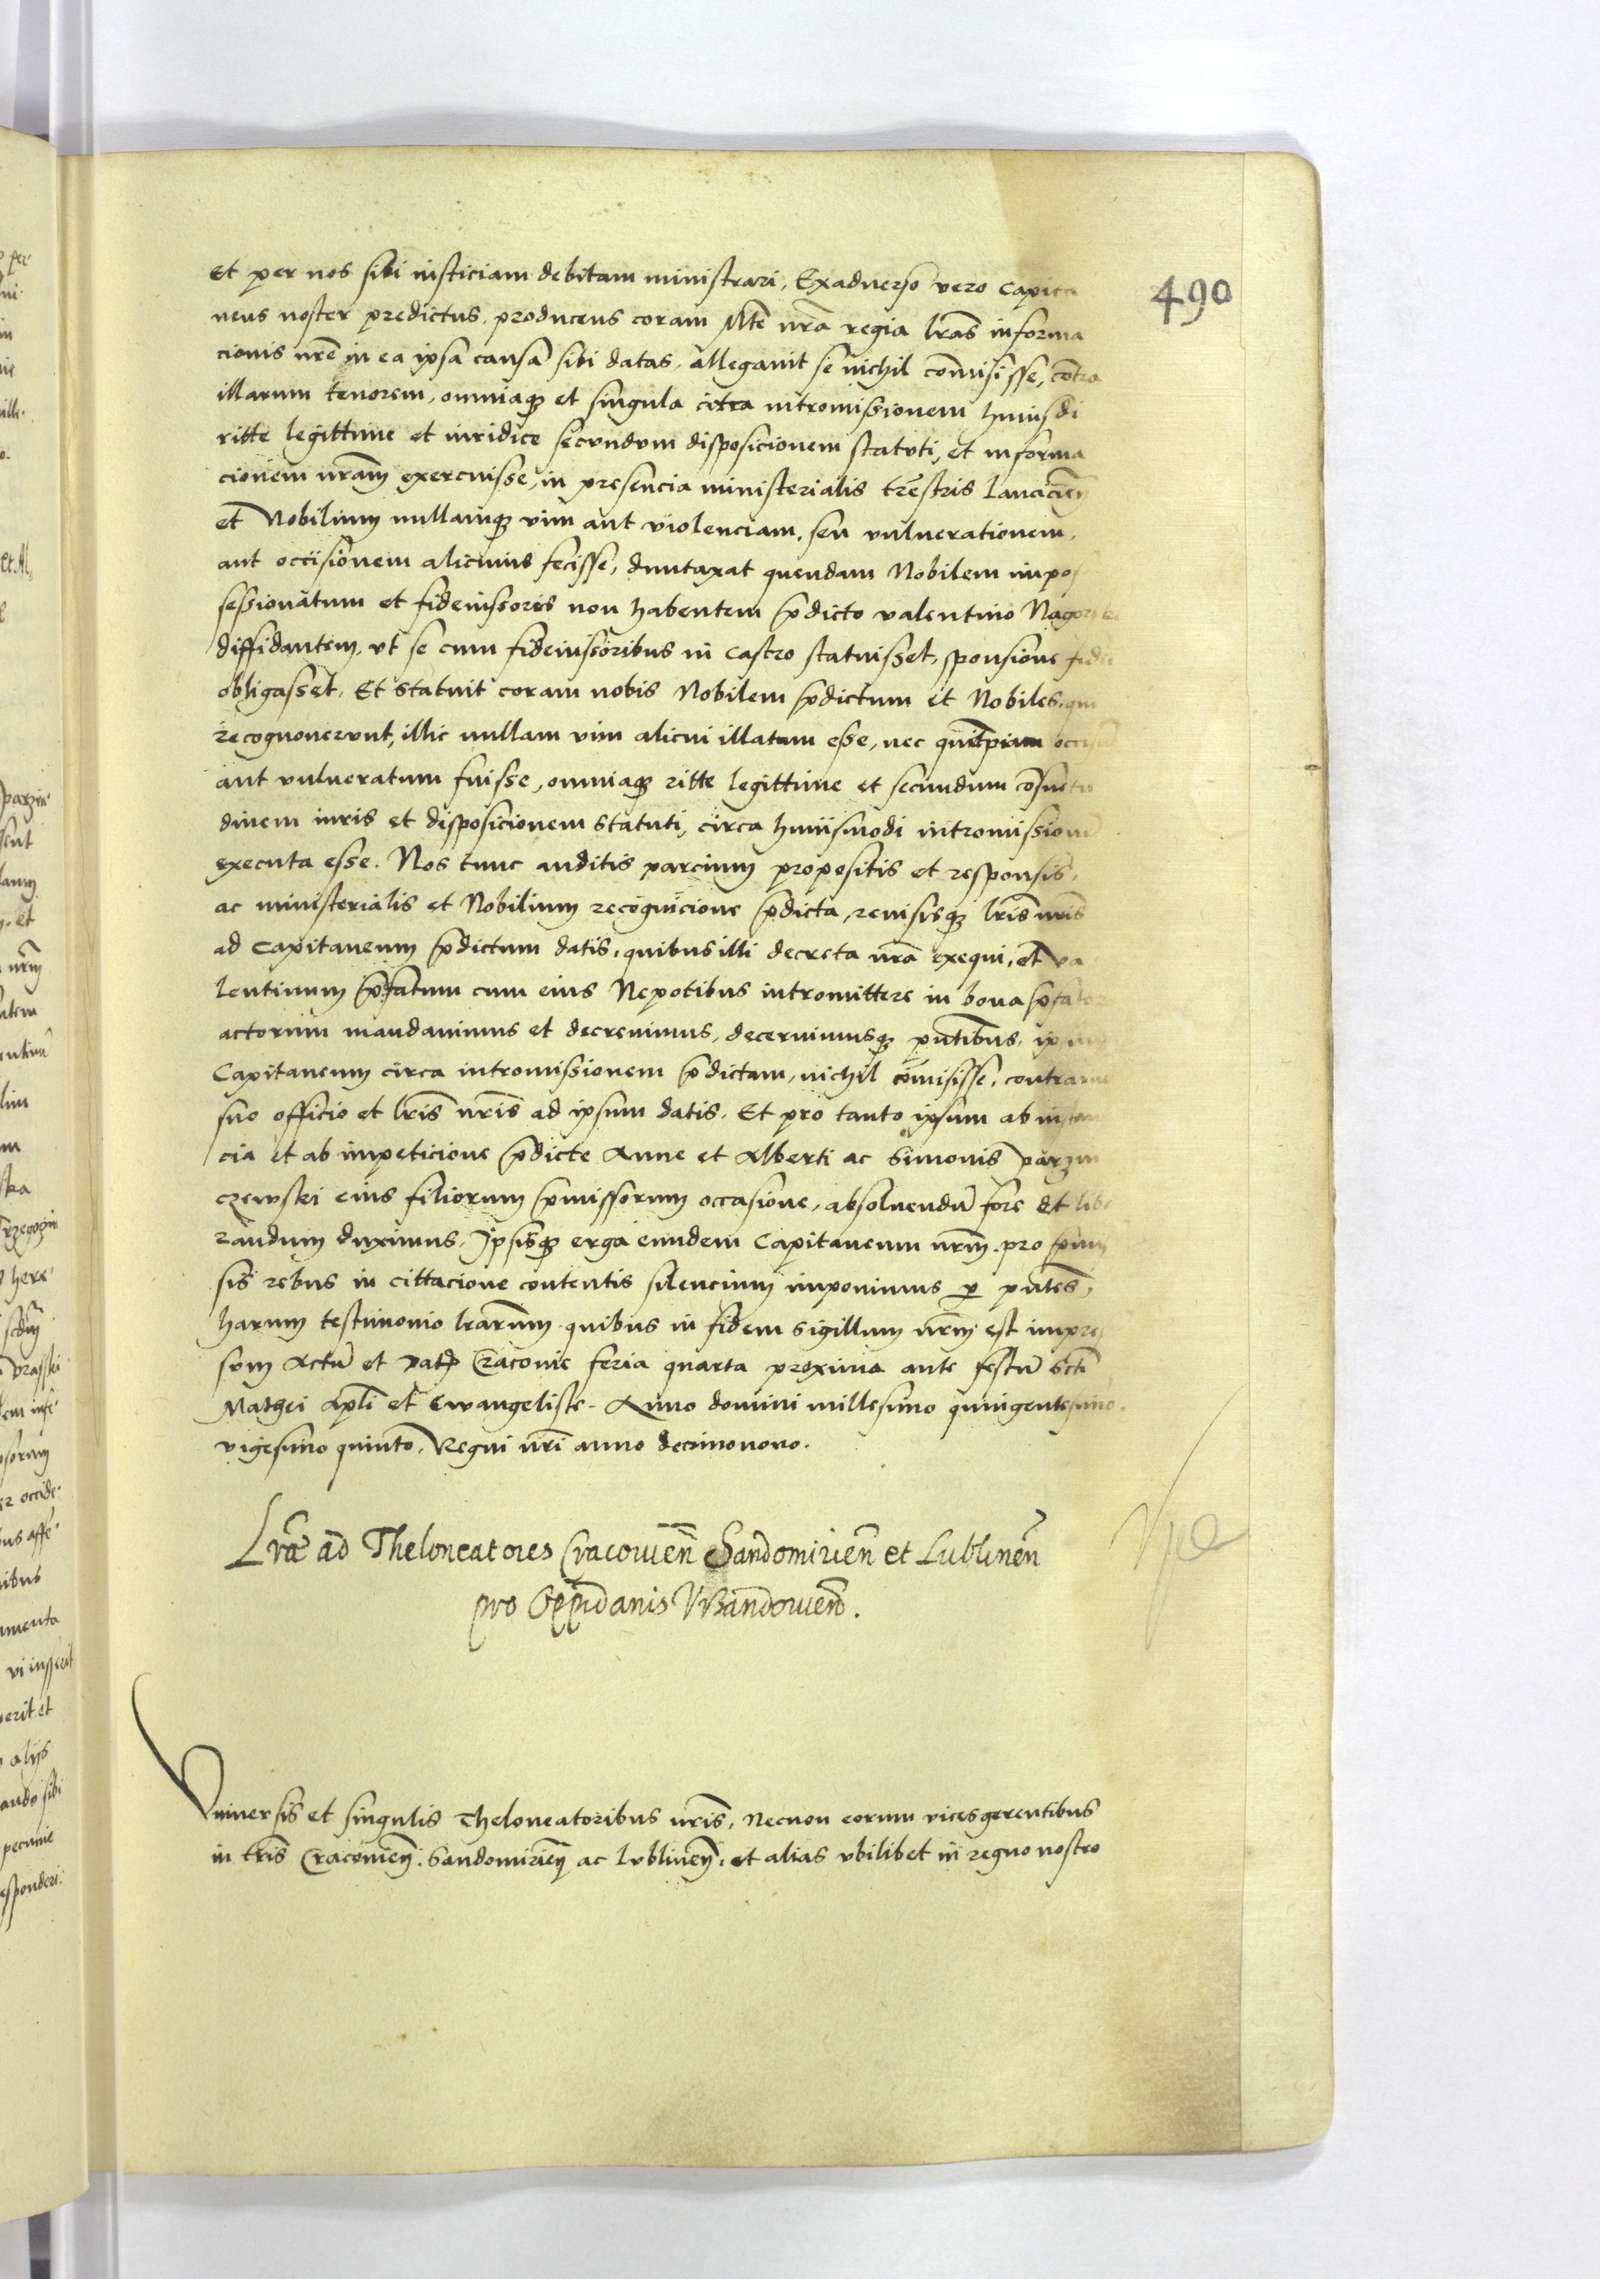 490
et per nos sibi iusticiam debitam ministrari, Exaduerso vero Capita
neus noster predictus, producens coram Mte nra regia lras informa
cionis nre in ea ipsa causa sibi datas, allegauit se nichil comisisse, contra
illarum tenorem, omniaqз et singula citra intromissionem huiusdi
ritte legittime et iuridice secundum disposicionem statuti, et informa
cionem nram exercuisse, in presencia ministerialis trestris Lancicien
et Nobilium nullamqз vim aut violenciam, seu vulnerationem,
aut occisionem alicuius fecisse, duntaxat quendam Nobilem impos
sessionatum et fideiussores non habentem pdicto valentino
diffidantem, vt se cum fideiussoribus in Castro statuisset, sponsione
obligasset, Et statuit coram nobis Nobilem pdictum et Nobiles, qui
recognouerunt, illic nullam vim alicui illatam esse, nec quempiam
aut vulneratum fuisse, omniaqз ritte legittime et secundum cosuetu
dinem iuris et disposicionem statuti, circa huiusmodi intromissione
executa esse. Nos tunc auditis parcium propositis et responsis,
ac ministerialis et Nobilium recognicione pdicta, reuisisqз lris nris
ad Capitaneum pdictum datis, quibus illi decreta nra exequi, et va
lentinum pfatum cum eius Nepotibus intromittere in bona
actorum mandauimus et decreuimus, decernimusqз pntibus,
Capitaneum circa intromissionem pdictam, nichil comisisse,
suo officio et lris nris ad ipsum datis. Et pro tanto ipsum ab instan
cia et ab impeticione pdicte Anne et Alberti ac Simonis parzin
czewski eius filiorum pmissorum occasione, absoluendu fore et libe
randum duximus, Ipsisqз erga eundem Capitaneum nrm pro pmis
sis rebus in cittacione contentis silencium imponimus p pntes,
harum testimonio lrarum quibus in fidem sigillum nrm est impres
sum Actu et dat Cracovie feria quarta proxima ante festu scti
Mathei Apli et Ewangeliste. Anno domini millesimo quingentesimo
vigesimo quinto, Regni nri anno decimonono.
Lrae ad Theloneatores Cracouien Sandomirien et Lublinen
pro Oppidanis
Vniuersis et singulis Theloneatoribus nris, Necnon eorum vicesgerentibus
in tris Cracouien, Sandomirien ac Lublinen, et alias vbilibet in regno nostro